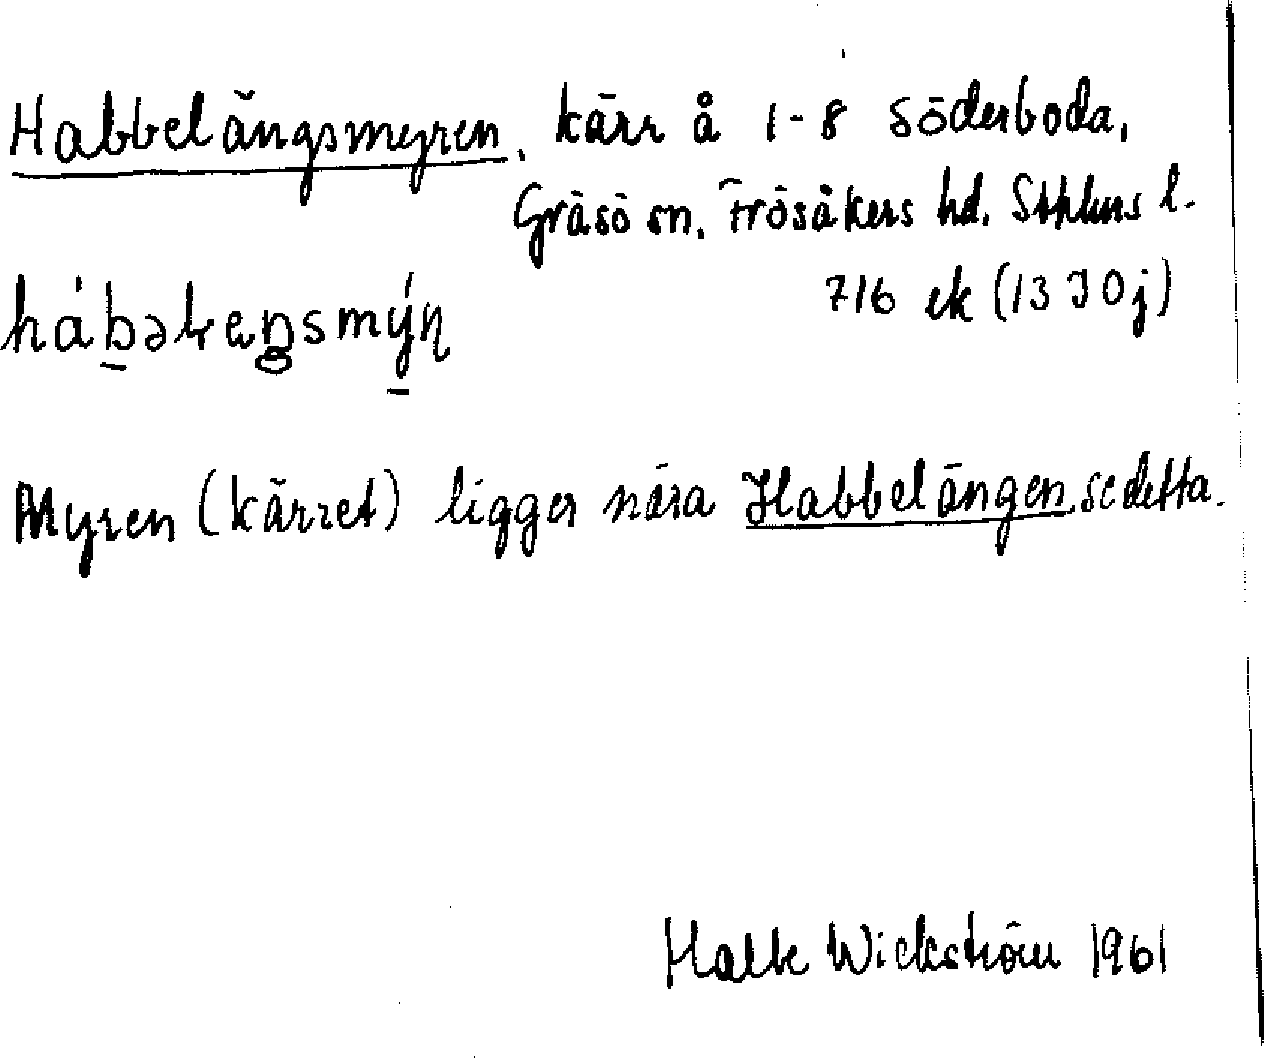 Habbelängsmyren, kärr å 1-8 Söderboda,
Gräsö sn. Frösåkers hd. Sthlms l.
716 ek (13 I 0 j)
Myren (kärret) ligger nära Habbelängen se detta.
Wickström 1961